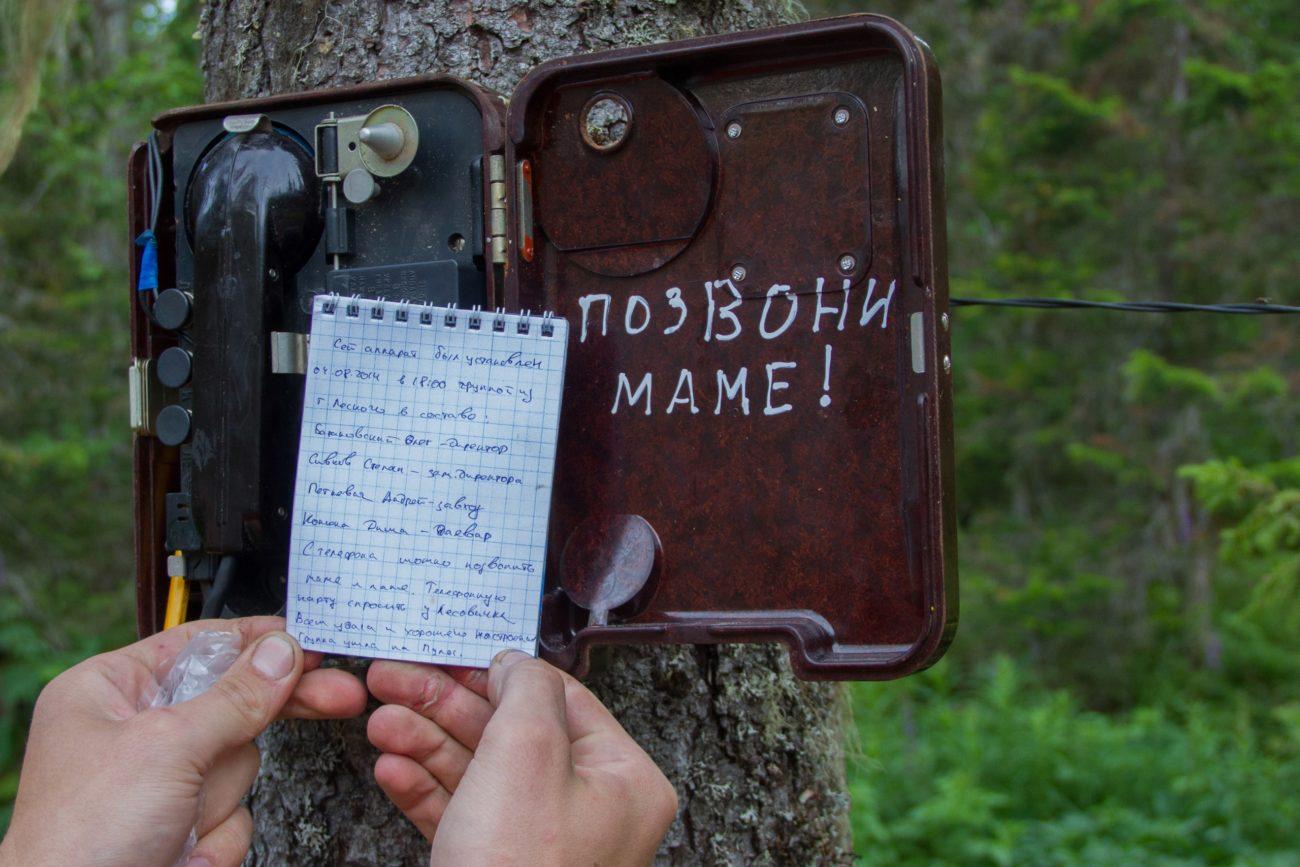 Сей аппарат был установлен
04.08.2014 в 18:00 группой из
г Лесного в составе:
Олег - Директор
Сивков Степан - зам. директора
Андрей - завхоз
Дима -
С телефона можно позвонить
маме и папе. Телефонную
карту спросить у Лесовичка
Всем удачи и хорошего настроения
Группа ушла на
ПОЗВОНИ
МАМЕ!